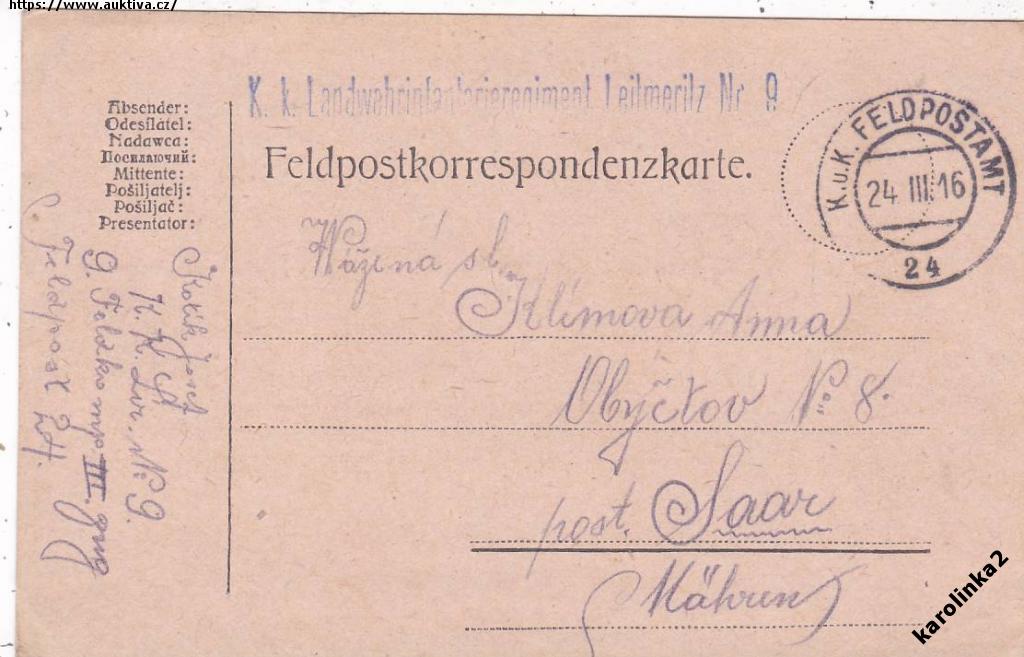 https://www.auktiva.cz/
K. k. Landwehrinfanterieregiment Leitmeritz Nr. 9
Absender:
Odesílatel:
Nadawca:
Посилаючий:
Mittente:
Pošiljatelj:
Pošiljač:
Presentator:
Feldpostkorrespondenzkarte.
K.u.K. FELDPOSTAMT
24 III 16
24
Vážená sl.
Klímova Anna
Obyčtov No 8.
post. Saar
(Mähren)
Kolík Josef
K. K.
Lir. No 9.
9. Feldkomp III. zug
Feldpost
karolinka2